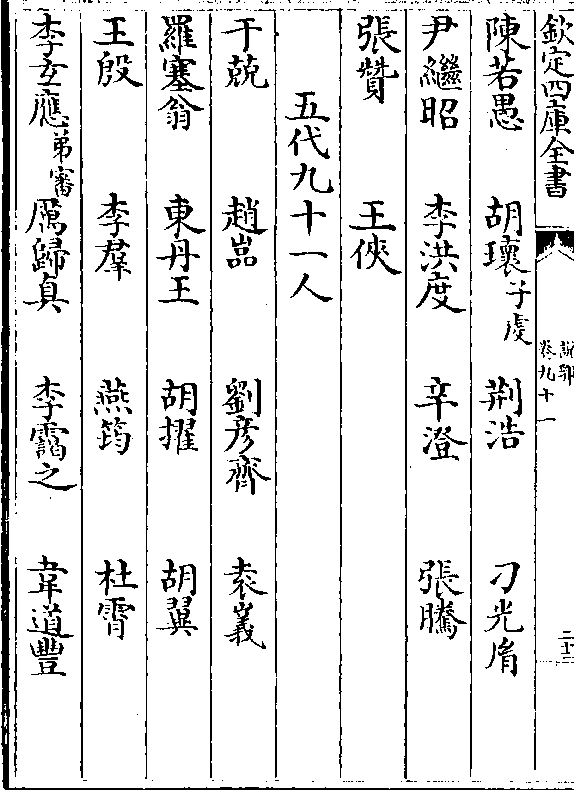 欽定四庫全書
說郛
卷九十一
陳若愚 胡瓌子虔 荆浩 刁光胤
尹繼昭 李洪度 辛澄 張騰
張贊 王俠
五代九十一人
于兢 趙嵒 劉彦齊 袁嶬
羅塞翁 東丹王 胡擢 胡翼
王殷 李羣 燕筠 杜霄
李玄應弟審 厲歸真 李靄之 韋道豐